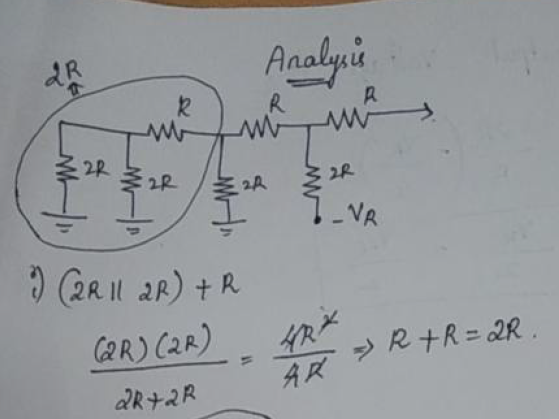 Analysis
2R
R R R
2R 2R 2R 2R
-VR
i) (2R || 2R) + R
(2R) (2R) / 2R+2R = 4R² / 4R ⇒ R + R = 2R.